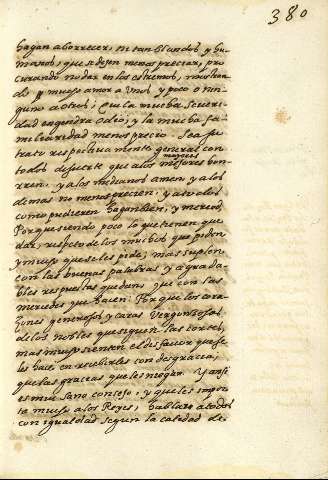 380
hagan aborrecer, ni tan blandos y hu-
manos, que se dejen menospreciar, pro
curando no dar en los estremos, mostran
do y mucho amor a unos y poco o nin-
guno a otros; que la mucha severi-
dad engendra odio; y la mucha fa-
miliaridad menosprecio. Sea su
trato respectuamente general con
todos de suerte que a los mayores hon-
rren. y a los medianos amen y a los
demas no menosprecien. y a todos
como pudieren hagan bien, y merced,
Porque siendo poco lo que tienen que
dar, respeto de los muchos que piden
y mucho que se les pide; mas suplen
con las buenas palabras, y agrada-
bles respuestas que dan, que con las
mercedes que hacen. Porque los cora-
çones generosos y caras vergonçosas
de los nobles que siguen las cortes,
mas mucho sienten el desfavor que se
les hace, en recibirles con desgracia,
que las gracias que les niegan. Y ansi
es muy sano consejo, y que les impor-
ta mucho a los Reyes, hablar a todos
con igualdad segun la calidad de